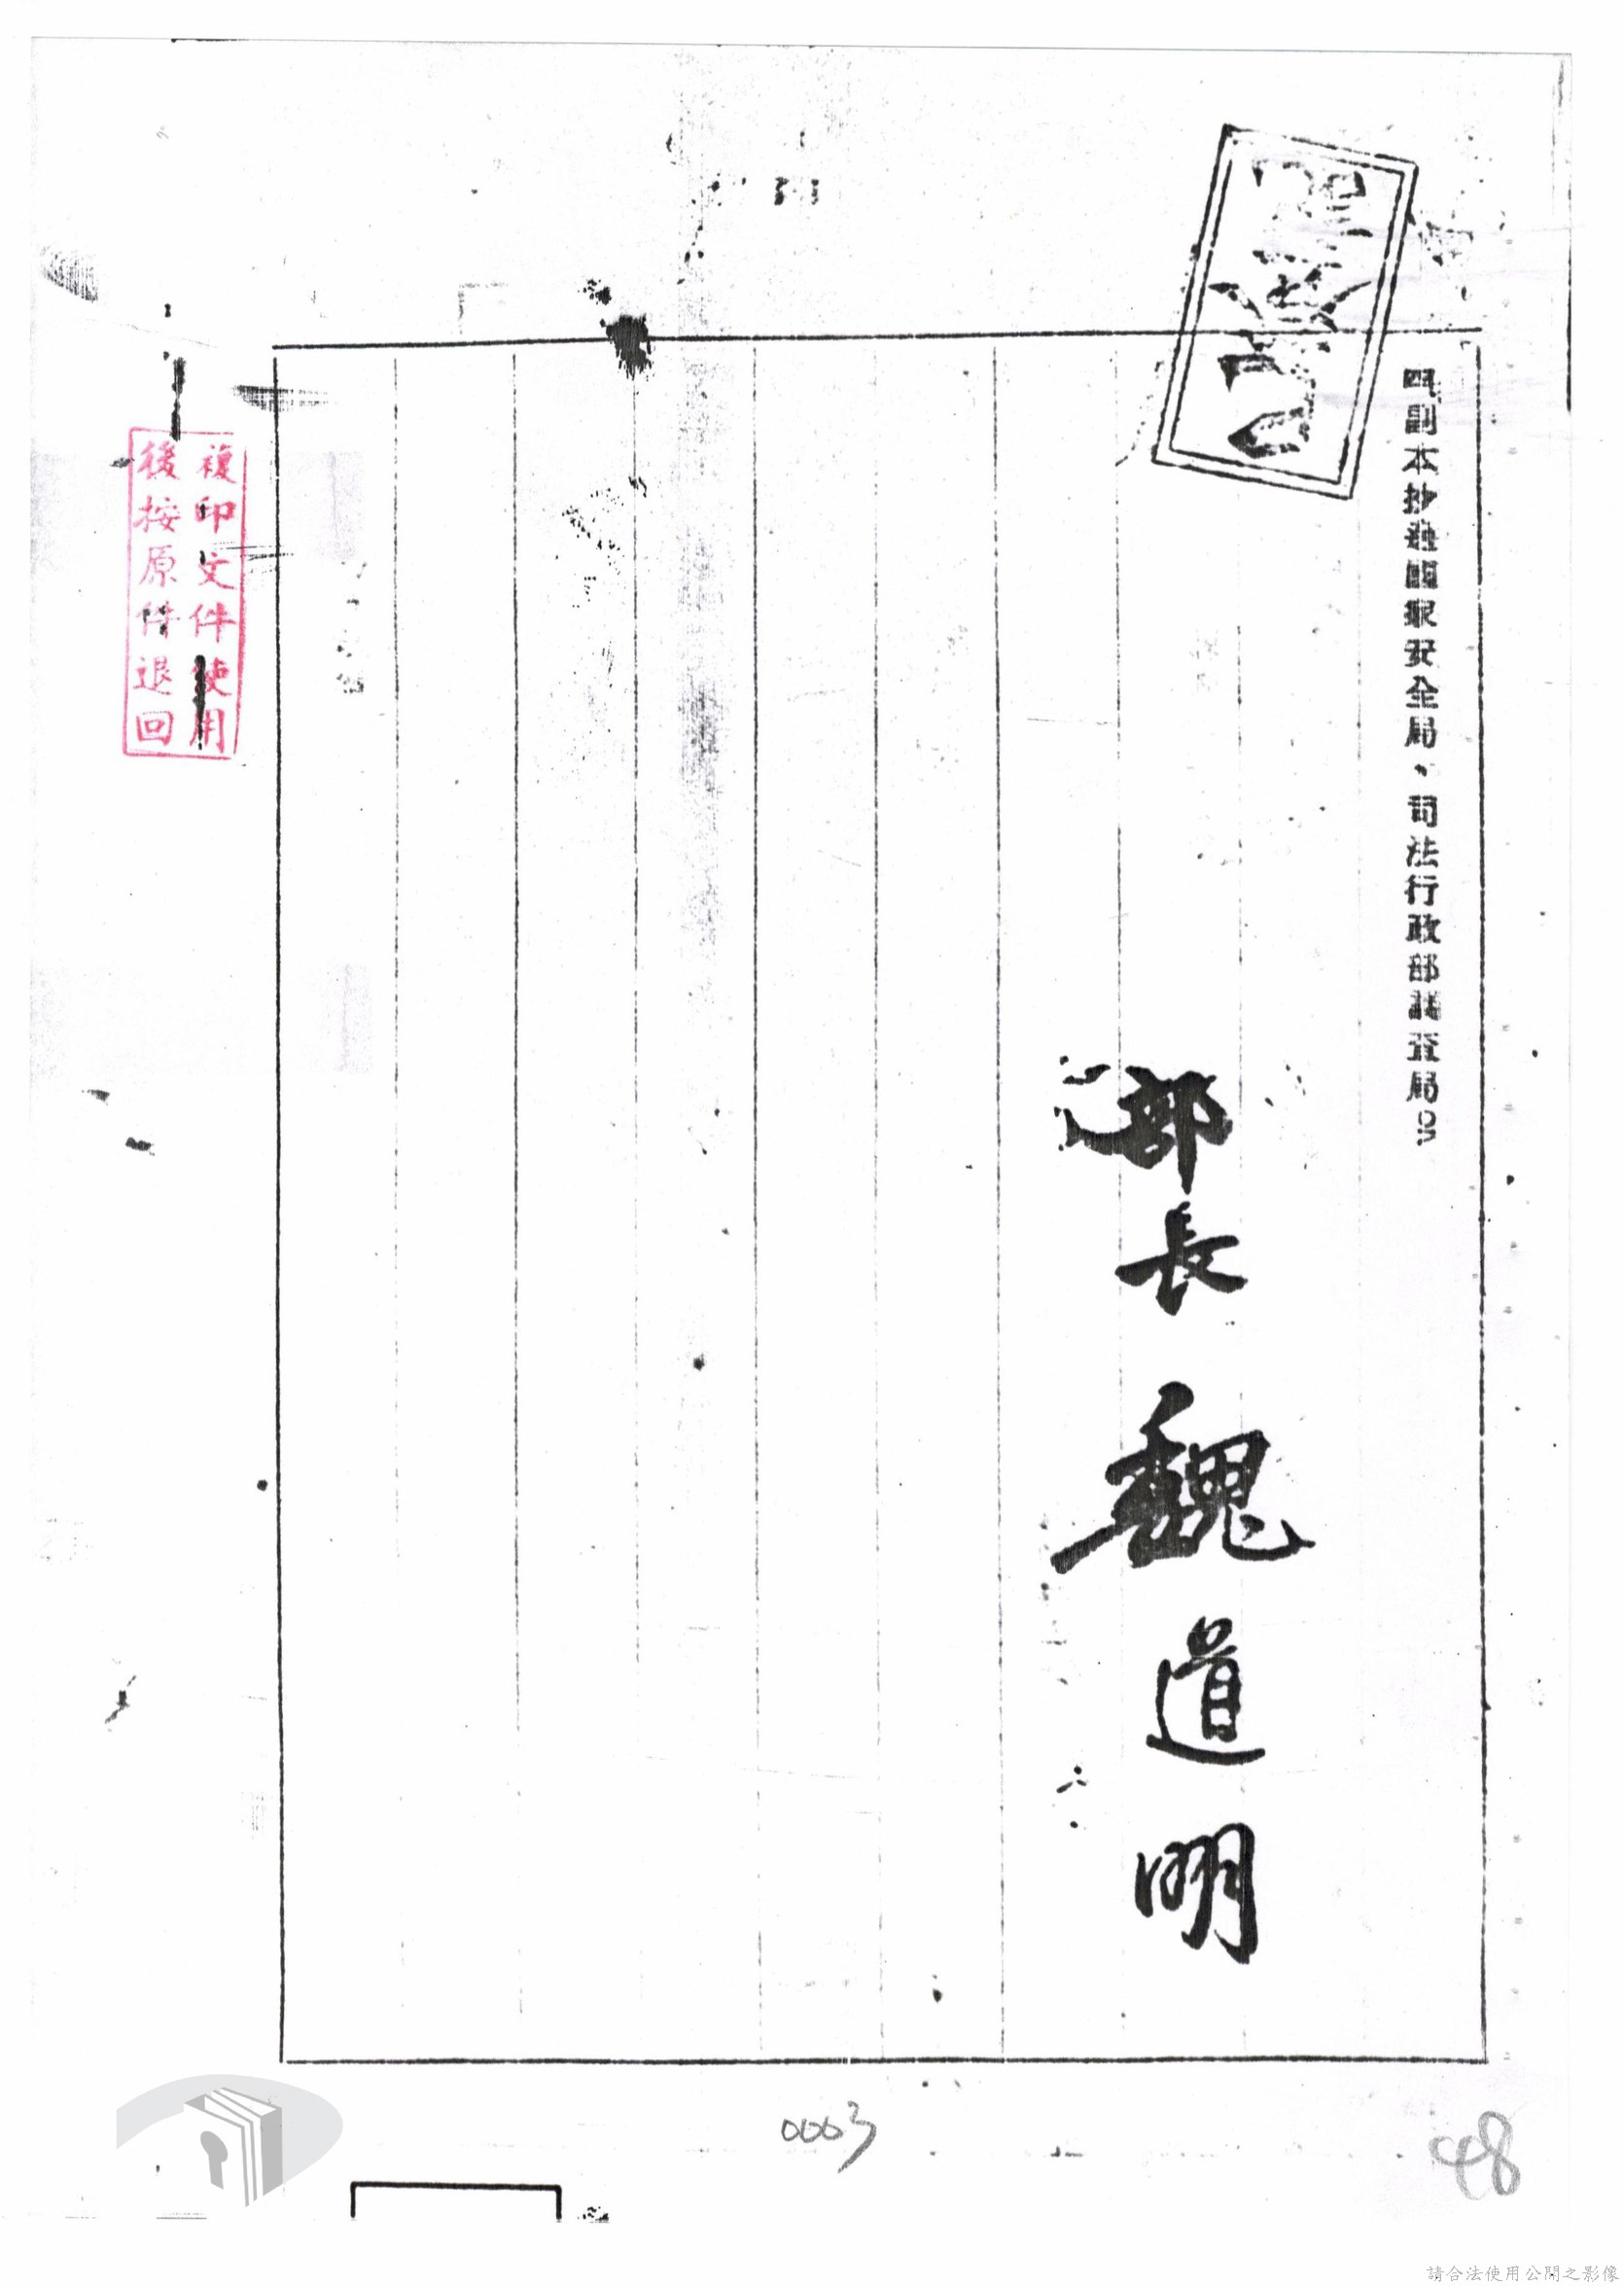 四副本抄送國家安全局、司法行政部調查局。
部長 魏道明
複印文件使用
後按原件退回
0003
48
請合法使用公開之影像